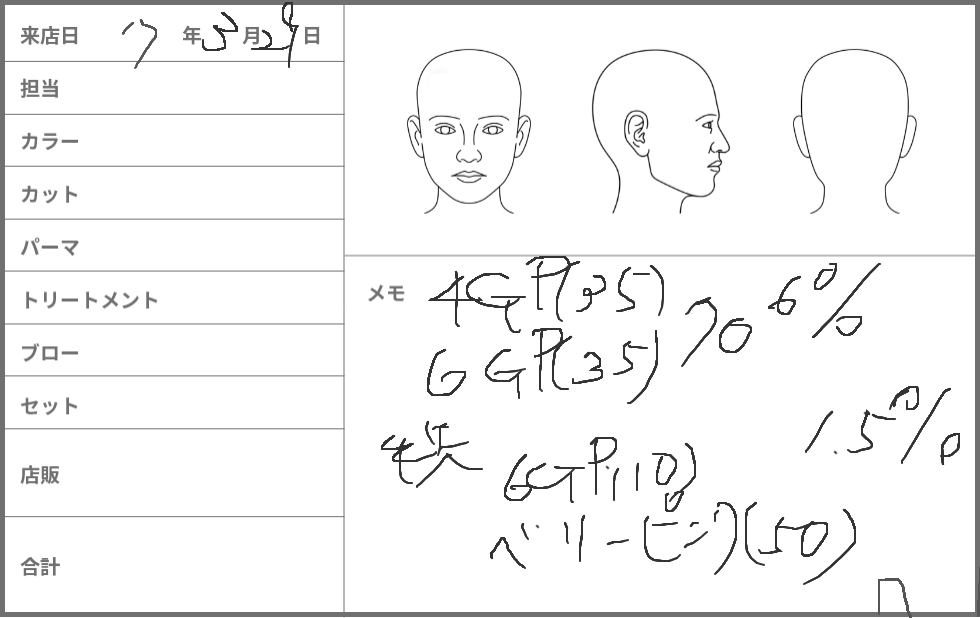 来店日 17年5月29日
担当
カラー
カット
パーマ
トリートメント
ブロー
セット
店販
合計
メモ
4GP(35)
6GP(35) 70 6%
1.5%
毛先 6GP(10)
ベリーピンク(50)